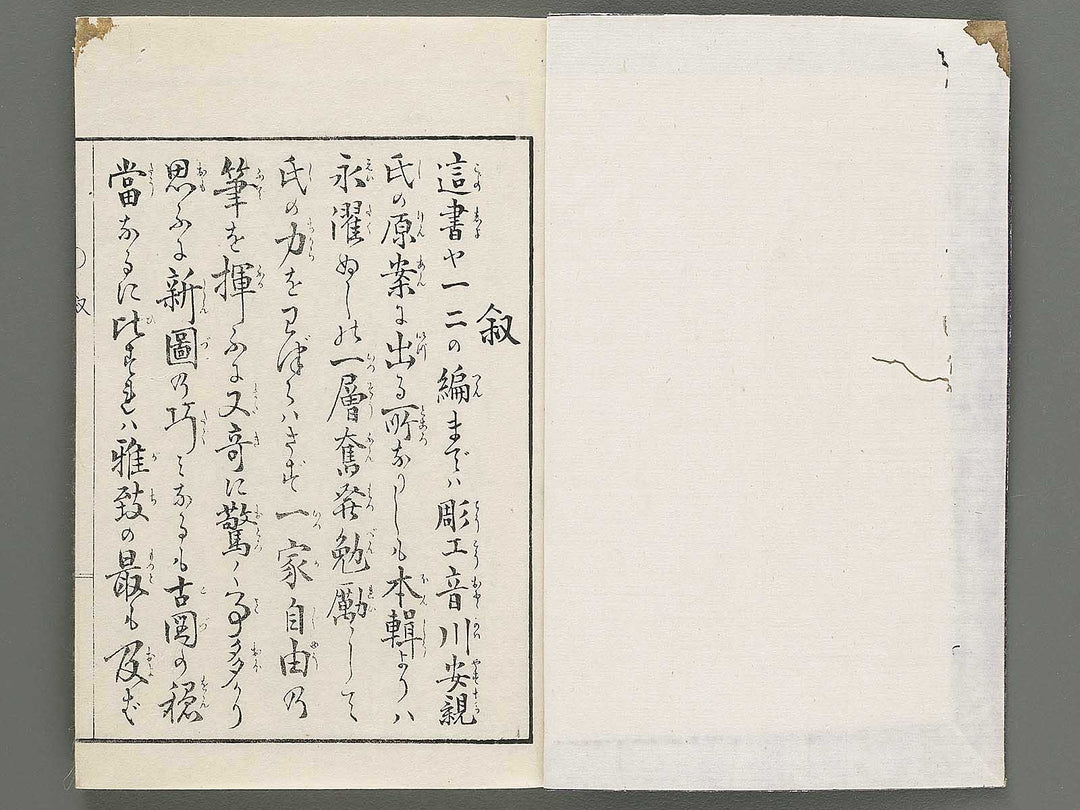 叙
這書や一二の編までハ彫工音川安親
氏の原案に出る所なりしも本輯よりハ
永濯ぬしが一層奮発勉励して
氏の力をわづらハさず一家自由の
筆を揮ふに又奇に驚く事多かり
思ふに新圖の巧ミなるも古図の穏
當なるに比すれハ雅致の最も及ば
叙